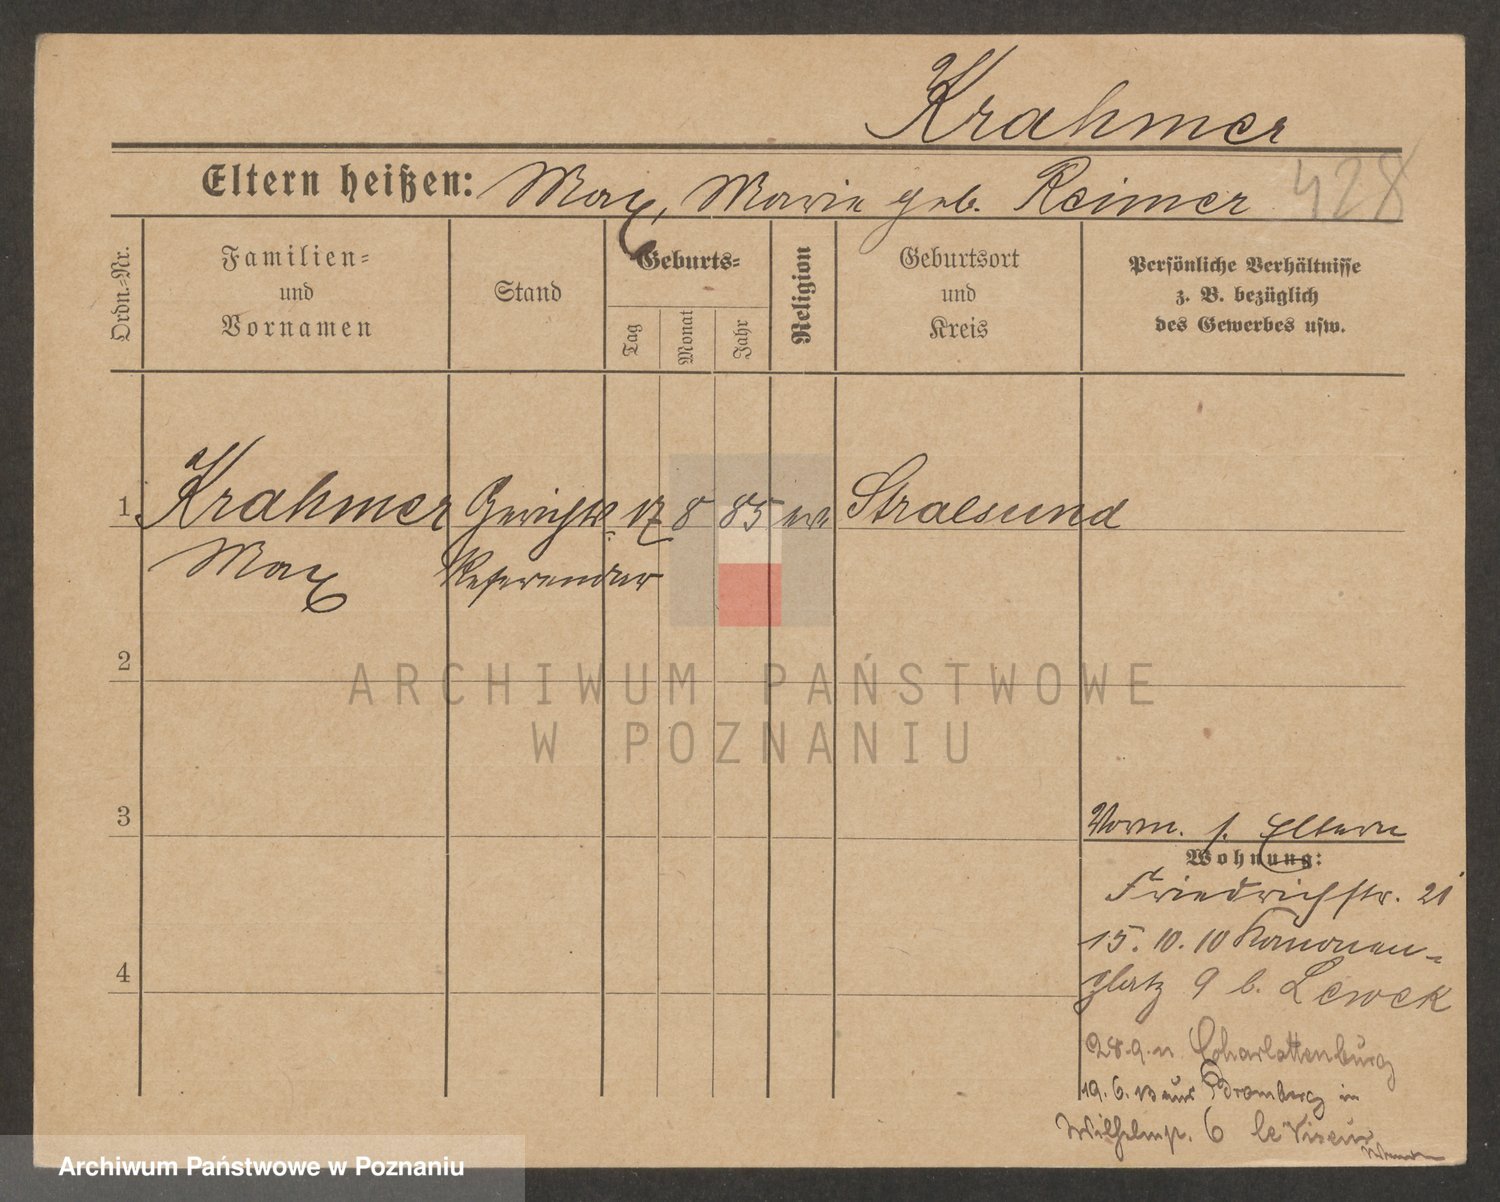 Krahmer
Eltern heißen: Max, Marie geb. Reimer 428
Ordn.-Nr.
Familien-
und
Vornamen
Stand
Geburts-
Tag
Monat
Jahr
Religion
Geburtsort
und
Kreis
Persönliche Verhältnisse
z. B. bezüglich
des Gewerbes usw.
1 Krahmer Gerichts 17 8 85 ev Stralsund
Max Referendar
2
ARCHIWUM PAŃSTWOWE
W POZNANIU
3
Vorn. s. Eltern
Wohnung:
Friedrichstr. 21
15. 10. 10 Kanonen-
4
platz 9 b. Lewek
28.9.11 Charlottenburg
19. 6. 13 aus Bromberg in
Wilhelmpl. 6 le Viseur
Archiwum Państwowe w Poznaniu